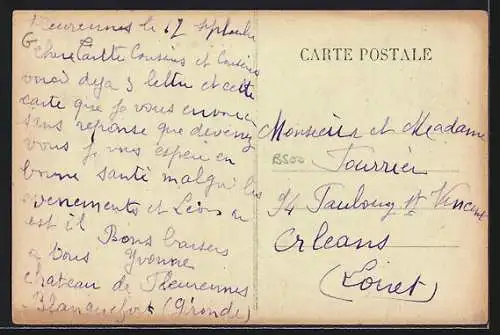 Fleurennes le 17 septembre
Chère Tante Cousins et Cousines
voici deja 3 lettre et cette
carte que je vous envoie
sans reponse que devenez
vous je vous espère en
bonne santé malgré les
evenements et Léon ou
est il
Bons baisers
a tous Yvonne
chateau de Fleurennes
Blanquefort (Gironde)
CARTE POSTALE
Monsieur et Meadame
Tourrier
BS00
94 Faubourg St Vincent
Orleans
(Loiret)